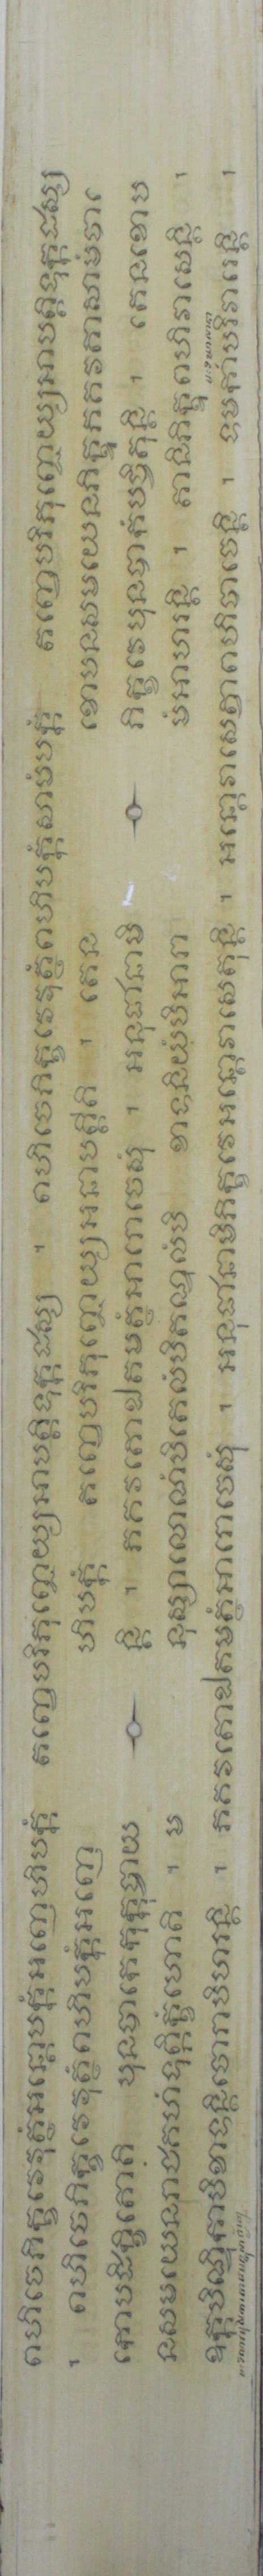 ពហិចេភិក្ខវេវុត្ថំអន្តោបក្កំអញ្ញេហិបក្កំ តញ្ចេបរិភុញ្ជេយ្យអាបត្តិទុក្កដស្ស ។ ពហិចេភិក្ខវេវុត្ថំពហិបក្កំសាមំបក្កំ តញ្ចេបរិភុញ្ជេយ្យអាបត្តិទុក្កដស្ស
។ ពហិចេភិក្ខវេវុត្ថំពហិបក្កំអញ្ញេ ហិបក្កំ តញ្ចេបរិភុញ្ជេយ្យអនាបត្តីតិ ។ តេន ខោបនសមយេនភិក្ខូភគវតាសាមំបា
កោបដិក្ខិត្តោតិ បុនបាកេកុក្កុច្ចាយ ន្តិ ។ ភគវតោឯតមត្ថំអារោចេសុំ ។ អនុជានាមិ ភិក្ខវេបុនបាកំបចិតុន្តិ ។ តេនខោប
នសមយេនរាជគហំទុព្ភិក្ខំហោតិ ។ ម នុស្សាលោណំបិតេលំបិតណ្ឌុលំបិ ខាទនិយំបិអារា មំអាហរន្តិ ។ តានិភិក្ខូពហិវាសេន្តិ ។
ឧក្កបិណ្ឌិកាបិខាទន្តិចោរាបិហរន្តិ ។ ភគវតោឯតមត្ថំអារោចេសុំ ។ អនុជានាមិភិក្ខវេអន្តោវាសេតុន្តិ ។ អន្តោវាសេត្វាពហិបាចេន្តិ ។ ទមកាបរិវារេន្តិ ។